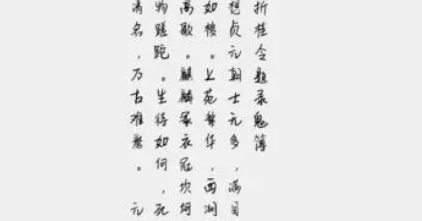 折桂令题录鬼簿
想贞元朝士无多，满目
如梭。上苑繁华，西湖
高歌。麒麟冢衣冠，坎坷
物蹉跎。生待如何，死
清名，万古难磨。 元